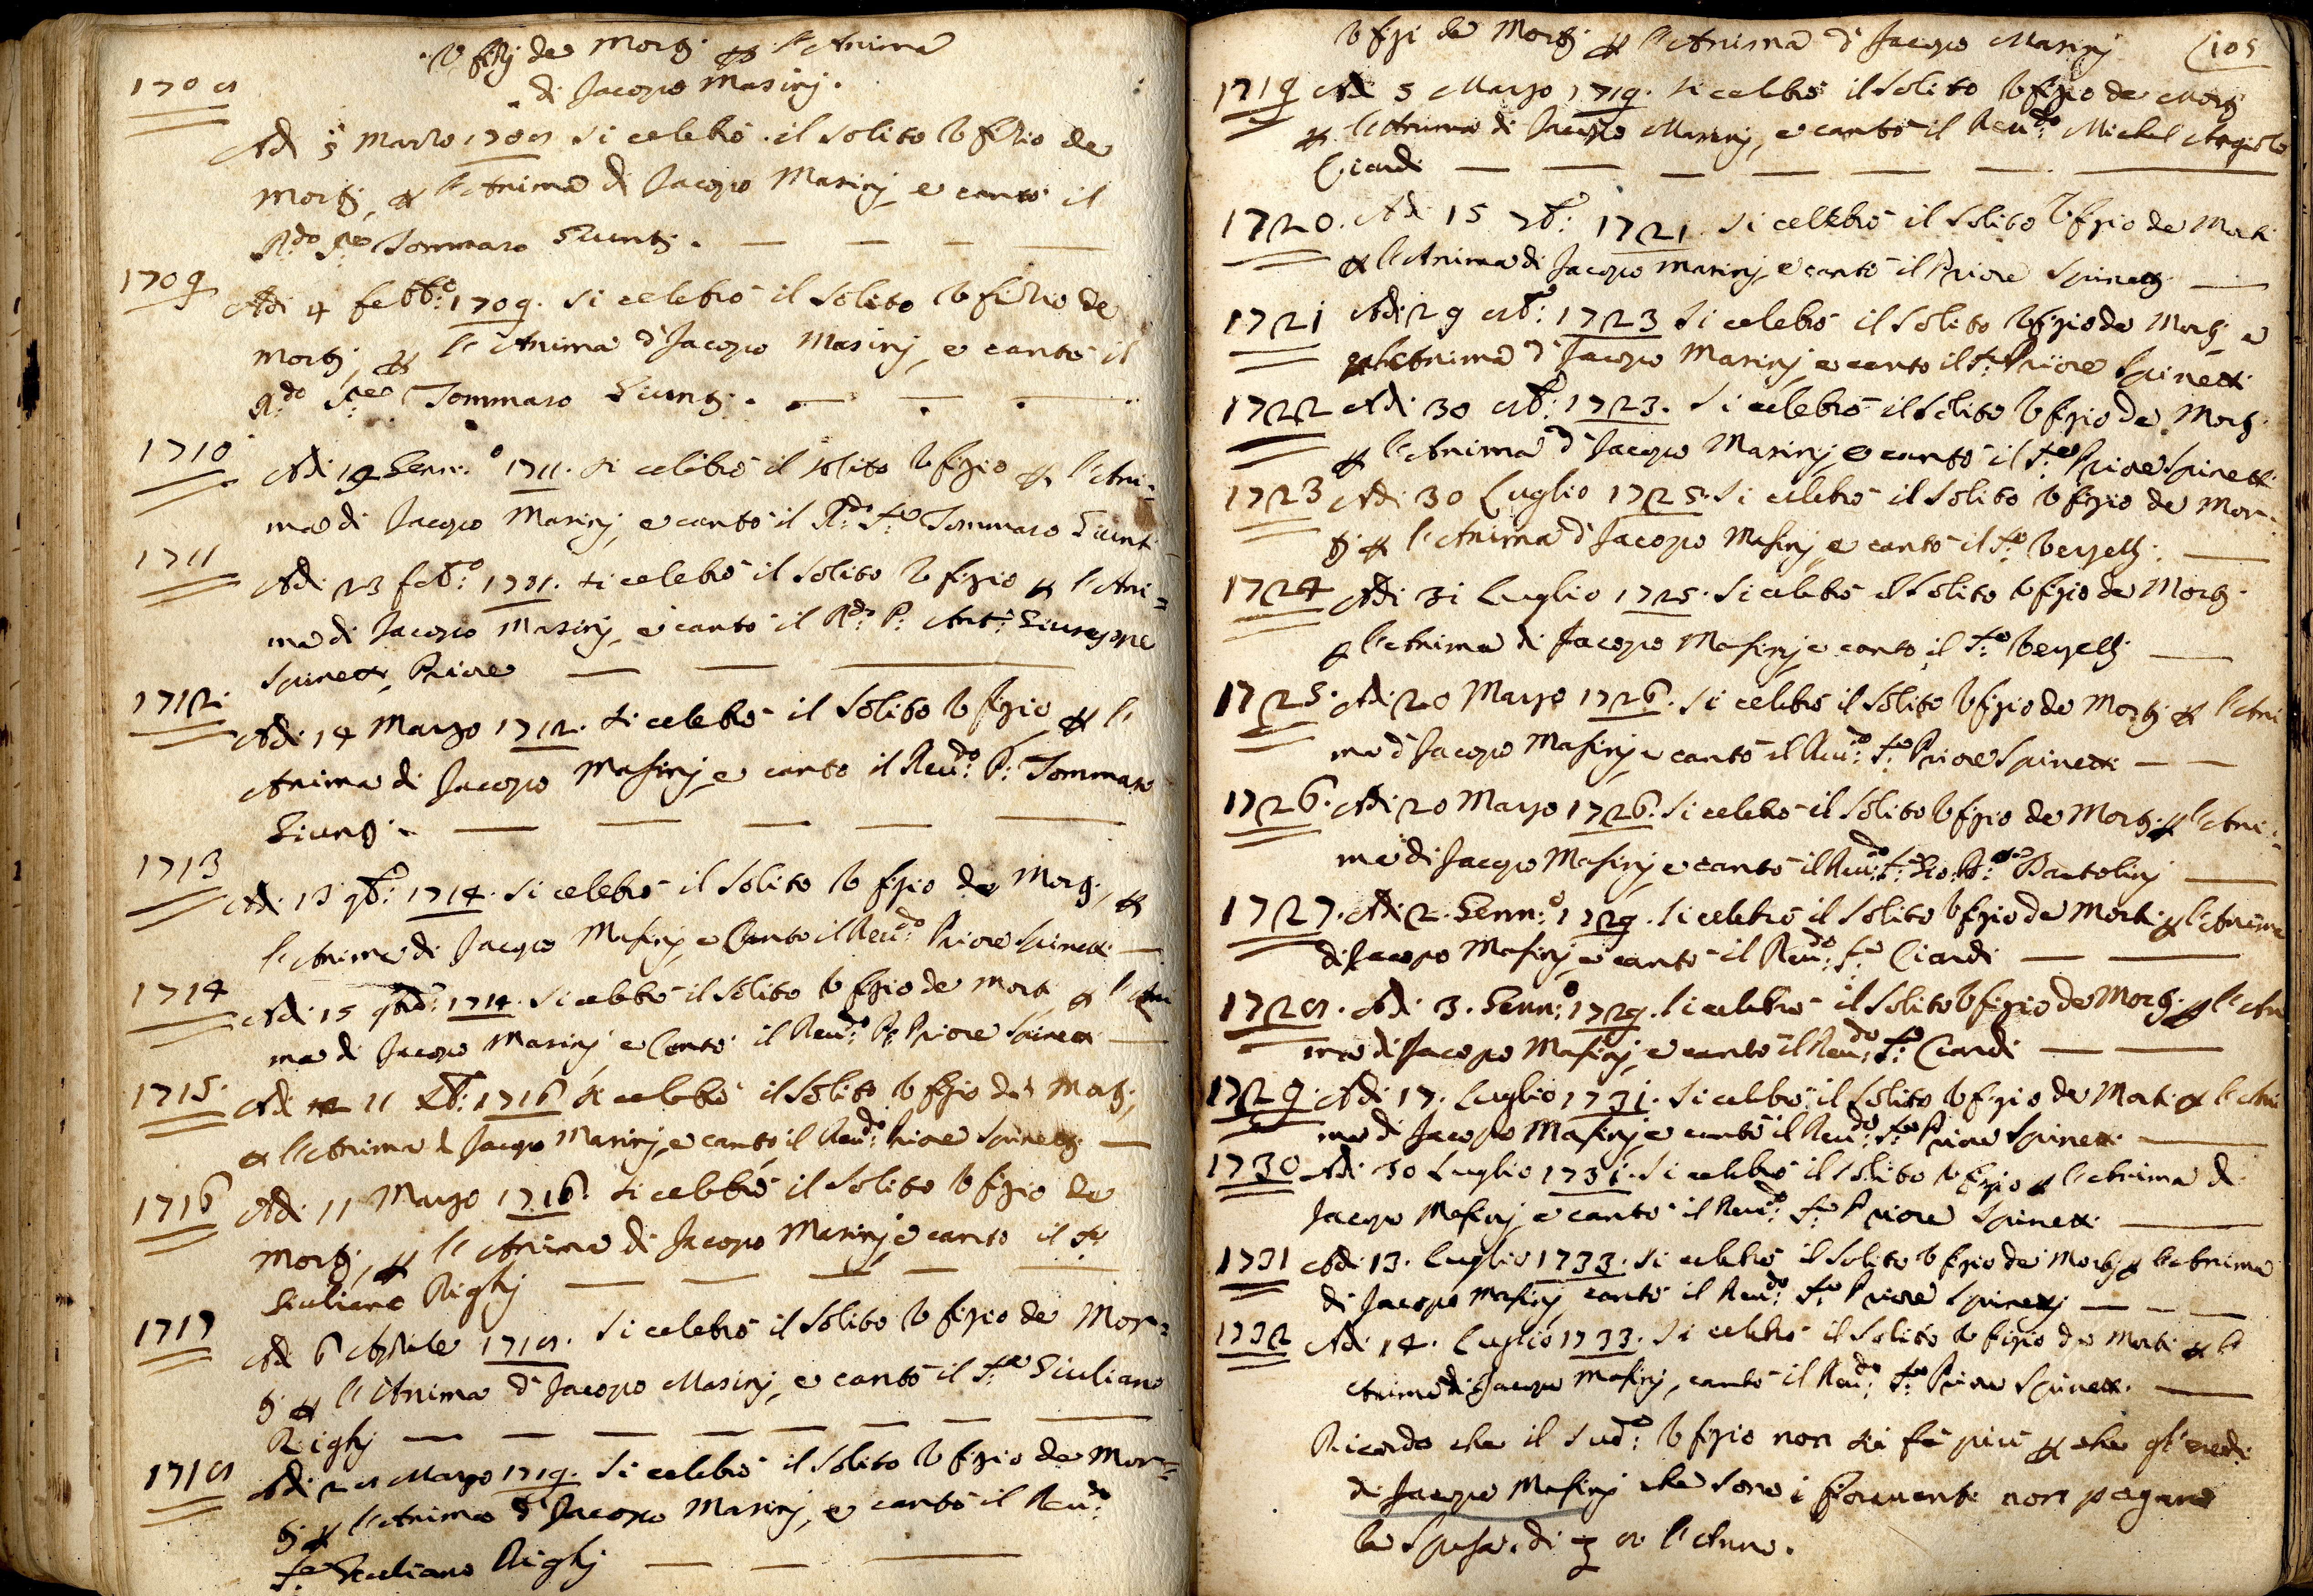 Ufizj de Morti p l'Anima
di Jacopo Masinj.
1708
Adi 5 Marzo 1708 si celebrò il solito Ufizio de
Morti, p l'Anima di Jacopo Masinj, e cantò il
R.do Tommaso Giunti.
1709
Adi 4 febb.o 1709. si celebrò il solito Ufizio de
Morti, p l'Anima di Jacopo Masinj, e cantò il
R.do Tommaso Giunti.
1710
Adi 19 Genn.o 1711. si celebrò il solito Ufizio p l'Ani=
ma di Jacopo Masinj, e cantò il R.do Tommaso Giunti
1711
Adi 23 feb.o 1711. si celebrò il solito Ufizio p l'Ani=
ma di Jacopo Masinj, e cantò il R.do P. Ant.o Giuseppe
Spinetti, Priore
1712.
Adi 14 Marzo 1712. si celebrò il solito Ufizio p l'
Anima di Jacopo Masinj, e cantò il Reu.do P. Tommaso
Giunti.
1713
Adi 13 9b.e 1714. si celebrò il solito Ufizio de Morti, p
l'Anima di Jacopo Masinj, e Cantò il Reu.do Priore Spinetti
1714
Adi 15 1714. si celebrò il solito Ufizio de Morti p l'Ani
ma di Jacopo Masinj e Cantò il Reu.do P. Priore Spinetti
1715.
Adi 11 Xb.e 1716 si celebrò il solito Ufizio de Morti,
p l'Anima d Jacopo Masinj, e cantò il Reu.do Priore Spinetti
1716
Adi 11 Marzo 1716. si celebrò il solito Ufizio de
Morti, p l'Anima di Jacopo Masinj e cantò il
Giuliano Righj
1717
Adi 6 Aprile 1718. si celebrò il solito Ufizio de Mor=
ti p l'Anima di Jacopo Masinj, e cantò il S.re Giuliano
Righj
1718
Adi 28 Marzo 1719. si celebrò il solito Ufizio de Mor=
ti p l'Anima di Jacopo Masinj, e cantò il Reu.do
S.re Giuliano Righj
Ufizi de Morti p l'Anima di Jacopo Masinj 105
1719 Adi 5 Marzo 1719. si celebrò il solito Ufizio de Morti
p l'Anima di Jacopo Masinj, e cantò il Reu.do Michel Angiolo
Ciardi
1720. Adi 15 7b.e 1721. si celebrò il solito Ufizio de Morti
p l'Anima di Jacopo Masinj, e cantò il Priore Spinetti
1721 Adi 29 8b.e 1723 si celebrò il solito Ufizio de Morti e
p l'Anima di Jacopo Masinj, e cantò il S.re Priore Spinetti
1722 Adi 30 8b.e 1723. si celebrò il solito Ufizio de Morti
p l'Anima di Jacopo Masinj, e cantò il S.re Priore Spinetti
1723 Adi 30 Luglio 1725. si celebrò il solito Ufizio de Mor=
ti p l'Anima di Jacopo Masinj, e cantò il S.re
1724 Adi 31 Luglio 1725. si celebrò il solito Ufizio de Morti
p l'Anima di Jacopo Masinj e cantò il S.re
1725. Adi 20 Marzo 1726. si celebrò il solito Ufizio de Morti p l'Ani
ma di Jacopo Masinj, e cantò il Reu.do S.re Priore Spinetti
1726. Adi 20 Marzo 1726. si celebrò il solito Ufizio de Morti p l'Ani=
ma di Jacopo Masinj e cantò il Reu.do S.re Gio. Bartolinj
1727. Adi 2. Genn.o 1729. si celebrò il solito Ufizio de Morti p l'Anima
di Jacopo Masinj, e cantò il Reu.do S.re Ciardi
1728. Adi 3. Genn.o 1729. si celebrò il solito Ufizio de Morti p l'Ani
ma di Jacopo Masinj, e cantò il Reu.do S.re Ciardi
1729. Adi 17. Luglio 1731. si celebrò il solito Ufizio de Morti p l'Ani
ma di Jacopo Masinj, e cantò il Reu.do S.re Priore Spinetti
1730 Adi 30 Luglio 1731. si celebrò il solito Ufizio p l'Anima di
Jacopo Masinj, e cantò il Reu.do S.re Priore Spinetti
1731 Adi 13. Luglio 1733. si celebrò il solito Ufizio de Morti p l'Anima
di Jacopo Masinj, cantò il Reu.do S.re Priore Spinettj
1732 Adi 14. Luglio 1733. si celebrò il solito Ufizio de Morti p l'
Anima di Jacopo Masinj, cantò il Reu.do S.re Priore Spinetti.
Ricordo che il sud.o Ufizio non si fà più p che gl'eredi
di Jacopo Masinj che sono i Fioravanti non pagano
la spesa di 8 l'Anno.